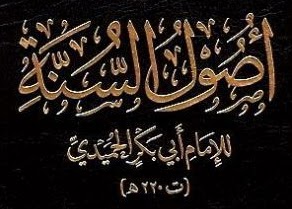 أُصُولُ السُّنَّةِ
لِلإِمَامِ أَبِي بَكْرٍ الحُمَيْدِيِّ
(ت ٢٢٠ هـ)